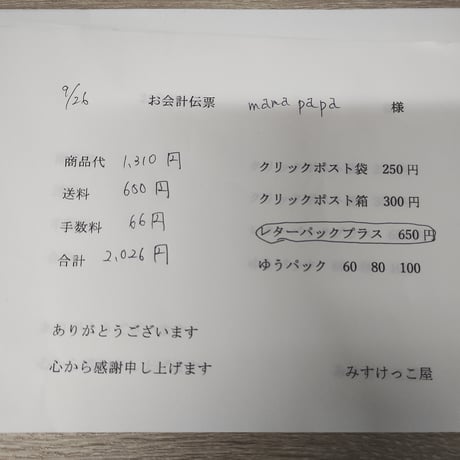 9/26 お会計伝票 mana papa 様
商品代 1,310円
送料 650円
手数料 66円
合計 2,026円
クリックポスト袋 250円
クリックポスト箱 300円
レターパックプラス 650円
ゆうパック 60 80 100
ありがとうございます
心から感謝申し上げます
みすけっこ屋